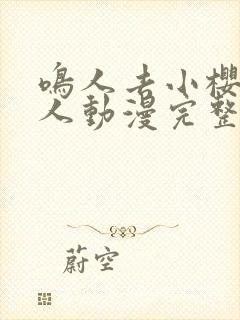 鳴人去小櫻
人動漫完整
蔚空